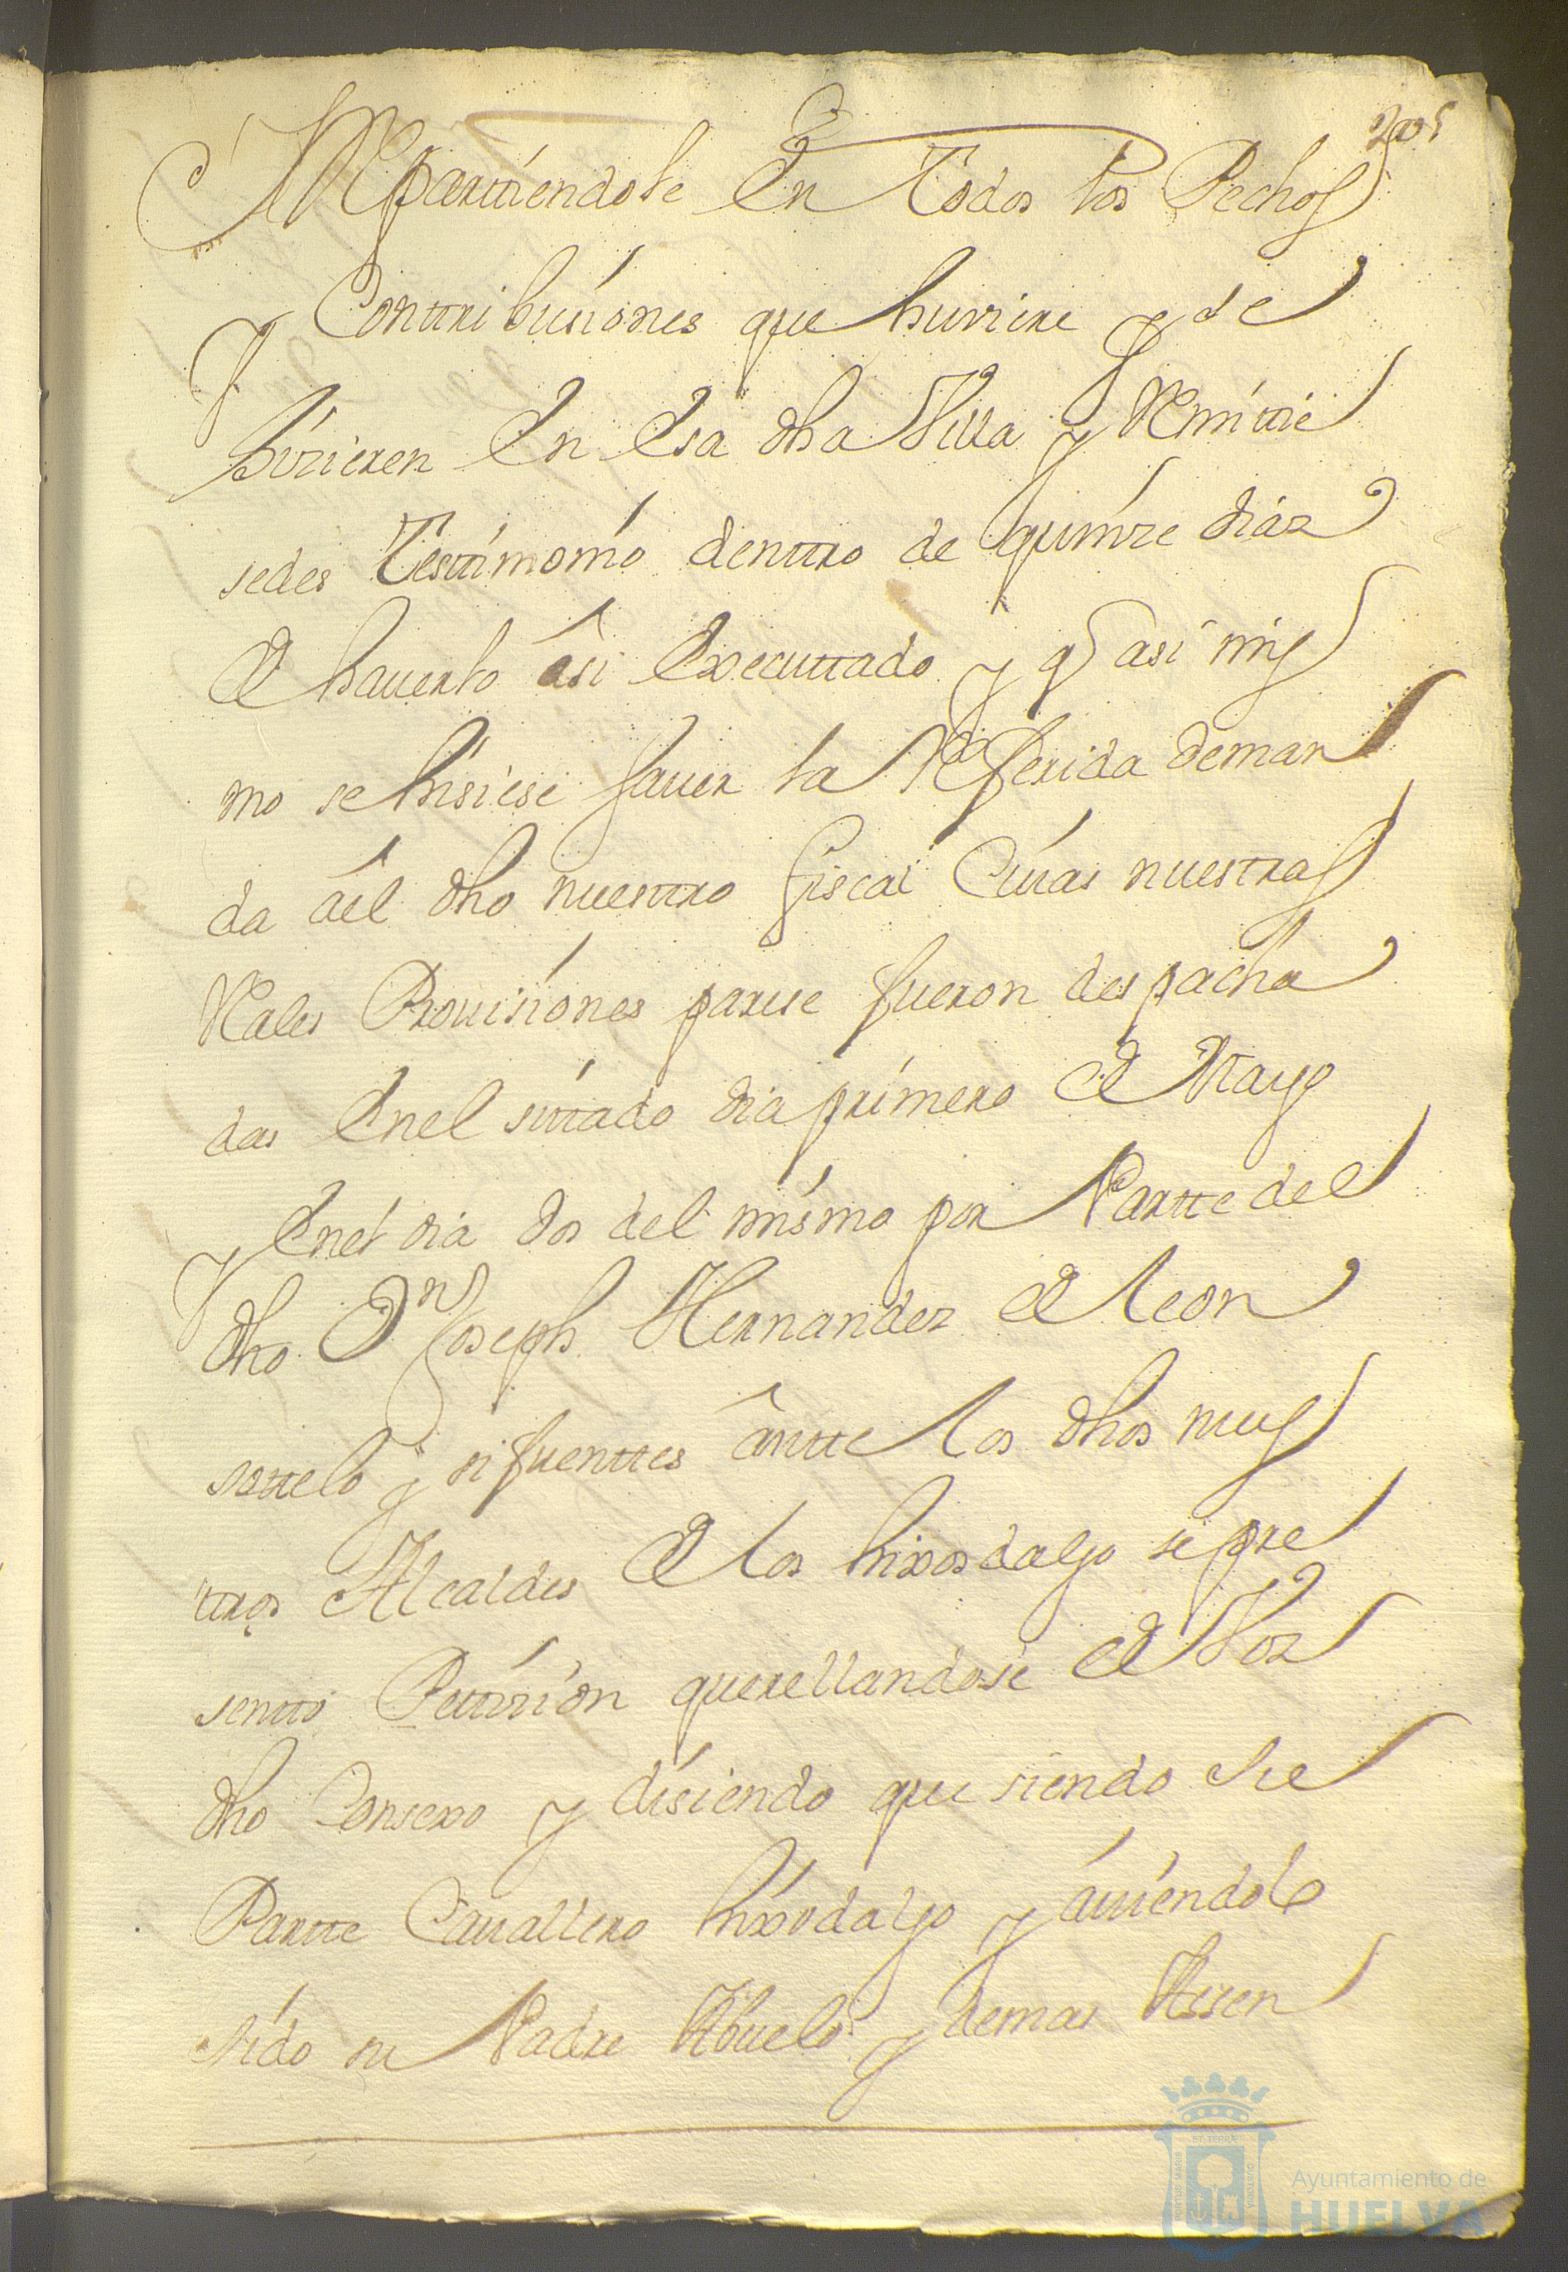 Repartiendole En Todos los Pechos
y Conttribusiones que huviere y de
bixieren En Esa dha Villa y Remittie
sedes Testtimonio denttro de quinze diaz
de hauerlo asi Executtado y q asi mis
mo se hisiese sauer la Referida deman
da âel dho nuesttro fiscal Cuias nuestras
Rales Prouisiones parese fueron despacha
das Enel sittado dia primero de Mayo
y Enel dia dos del mismo por Partte del
dho Dn Joseph Hernandez de leon
sottelo y sifuenttesântte los dhos nues
ttros Alcaldes de los hixosdalgo se pre
sentto Pettision querellandose de Vos
dho Consexo y disiendo que siendo su
Partte Cauallero hixodalgo y auiendolo
sido su Padre Abuelo y demas Assen
Ayuntamiento de
HUELVA